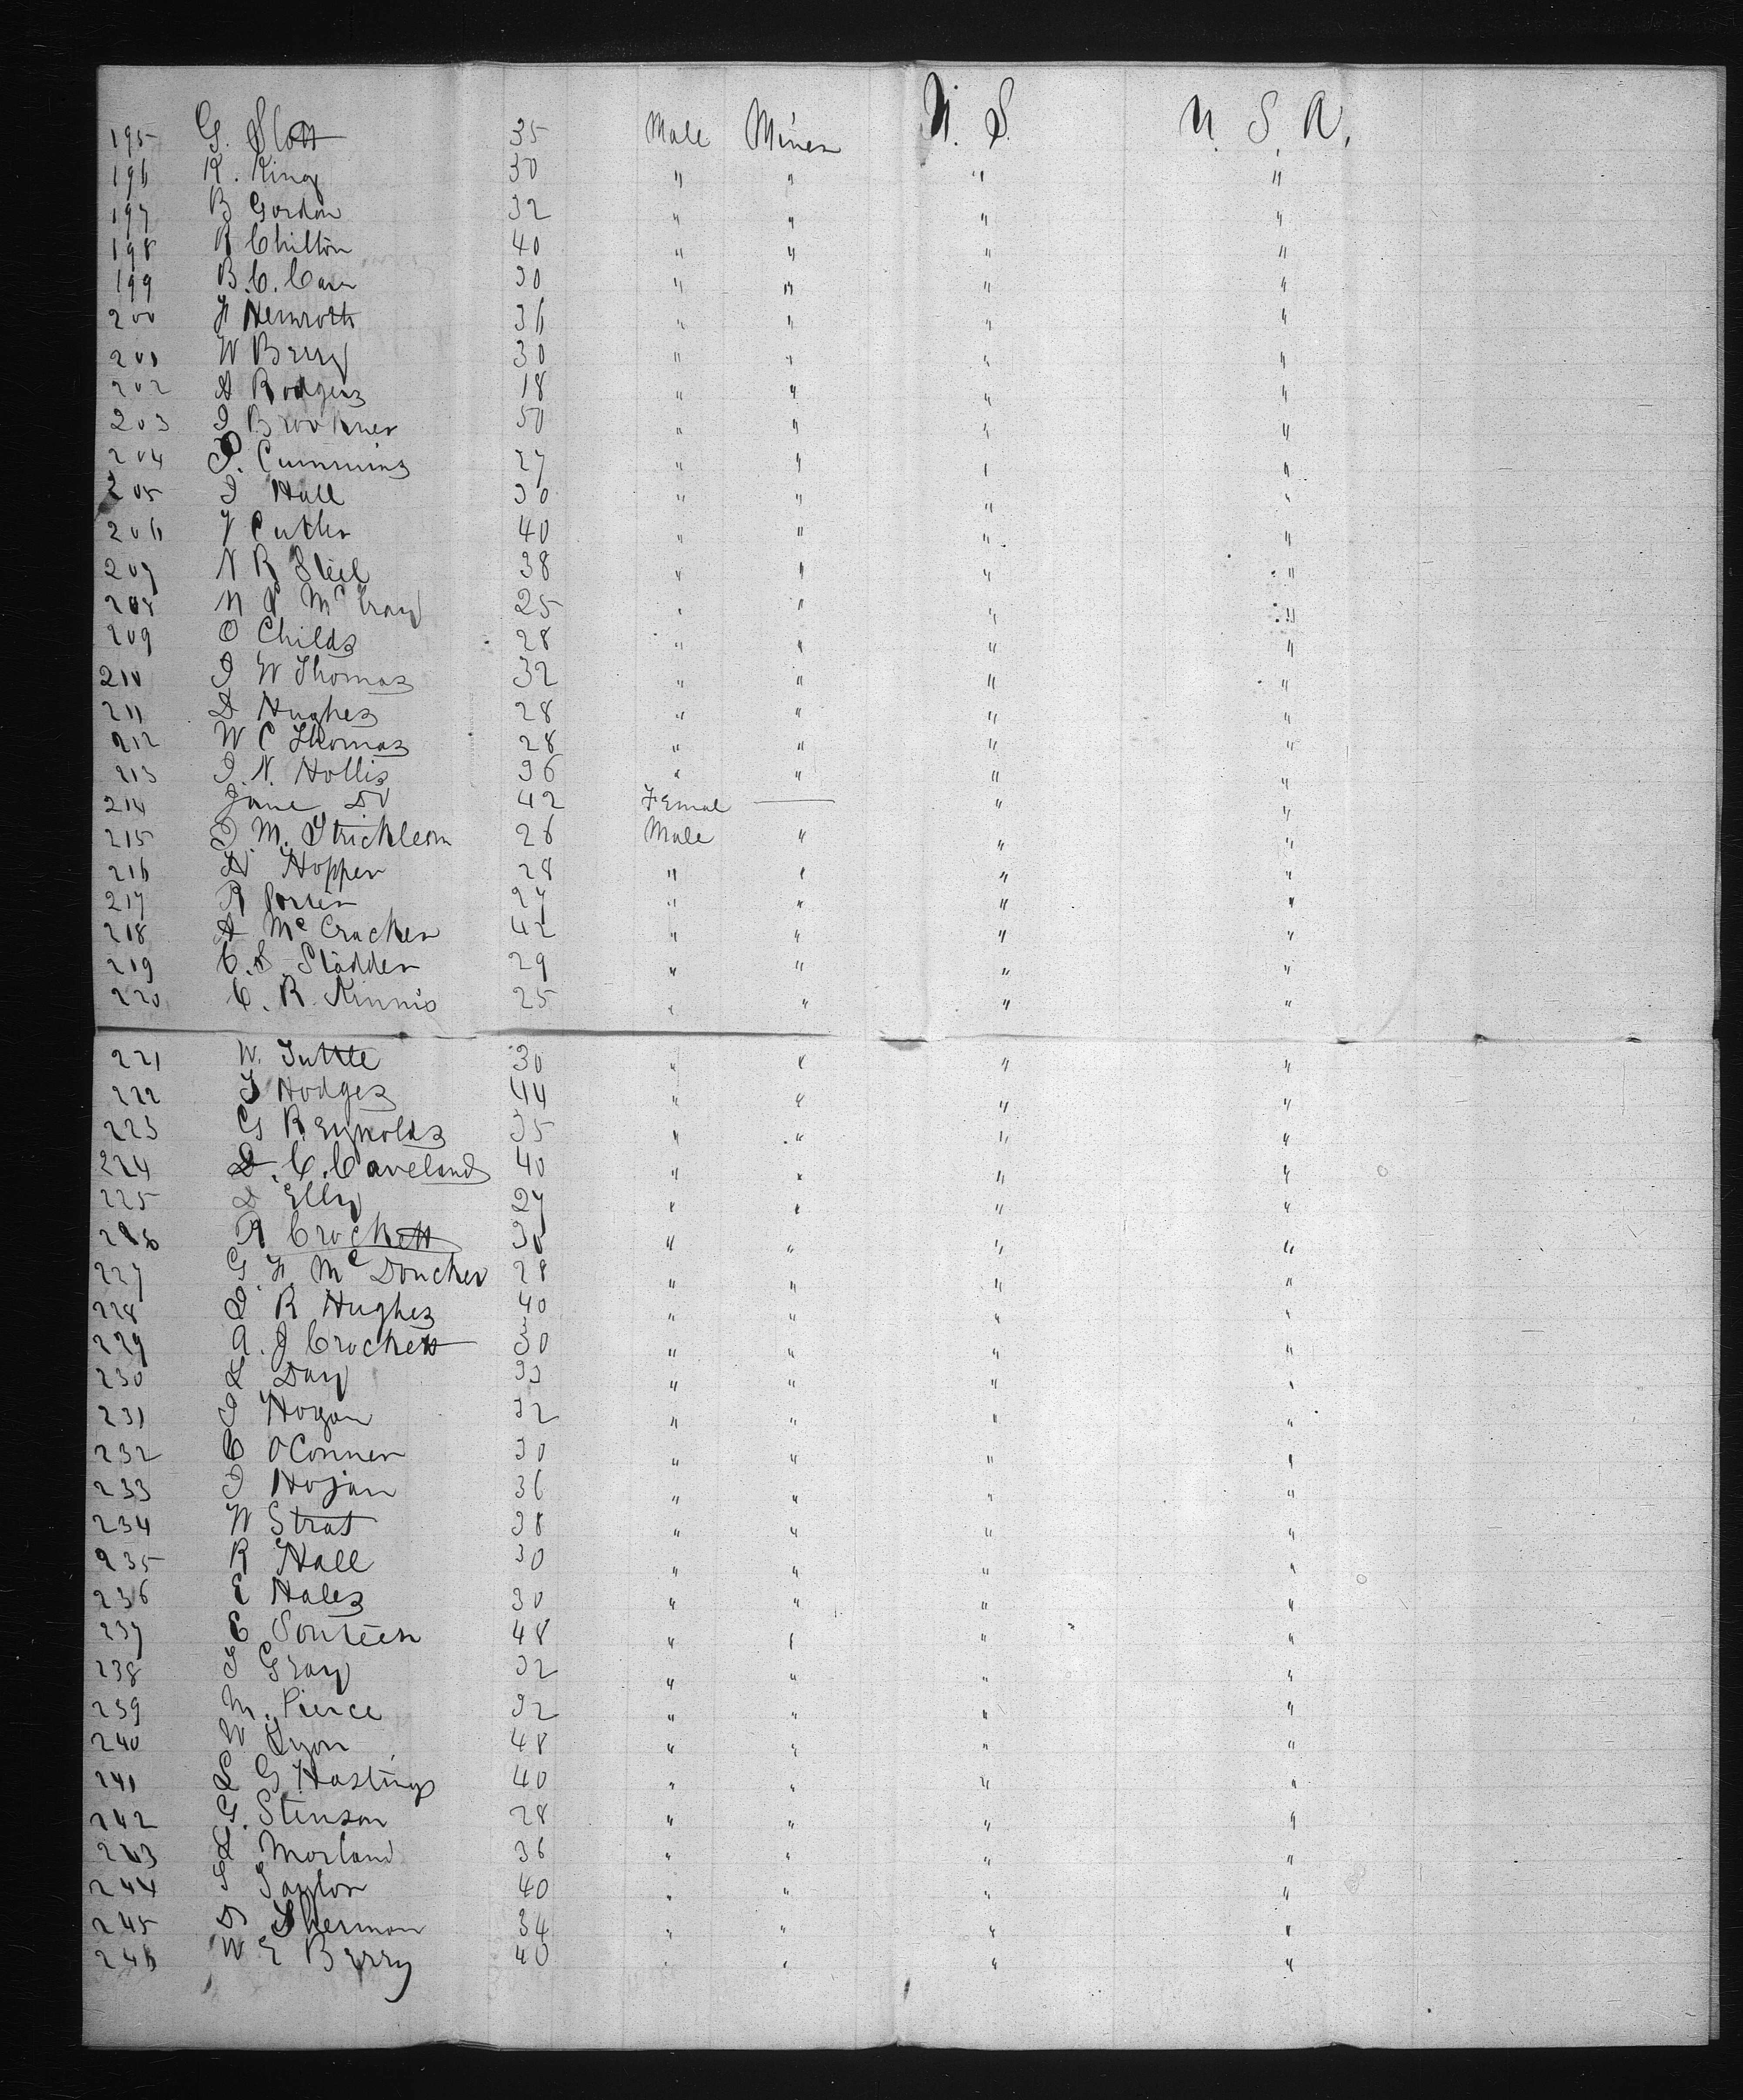 195 G. Slott 35 Male Miner U. S. U. S. A.
196 R. King 30 " " " "
197 B Gordon 32 " " " "
198 R Chilton 40 " " " "
199 B. C. Carr 30 " " " "
200 H 36 " " " "
201 W Berry 30 " " " "
202 A Rodgers 18 " " " "
203 J 50 " " " "
204 Cummins 27 " " " "
205 J Hall 30 " " " "
206 Cutler 40 " " " "
207 N R Steel 38 " " " "
208 N 25 " " " "
209 O Childs 28 " " " "
210 J W Thomas 32 " " " "
211 D Hughes 28 " " " "
212 W C Thomas 28 " " " "
213 J. N. Hollis 36 " " " "
214 Jane Do 42 Femal — " "
215 J. M. Stricklean 26 Male " " "
216 Hopper 28 " " " "
217 R Porter 27 " " " "
218 A McCracken 42 " " " "
219 C. S. Sladden 29 " " " "
220 C. R. Kinnis 25 " " " "
221 W. Tuttle 30 " " " "
222 T Hodges 44 " " " "
223 G Reynolds 35 " " " "
224 D. C. Caveland 40 " " " "
225 D Elly 27 " " " "
226 R Crockett 30 " " " "
227 G. H. McDoucher 28 " " " "
228 R Hughes 40 " " " "
229 A. J Crockett 30 " " " "
230 L Day 33 " " " "
231 J Hogan 32 " " " "
232 C OConner 30 " " " "
233 J Hojan 36 " " " "
234 W Strat 38 " " " "
235 R Hall 30 " " " "
236 E Hales 30 " " " "
237 E Souteen 48 " " " "
238 T Gray 32 " " " "
239 M. Pierce 32 " " " "
240 W Lyon 48 " " " "
241 L G Hastings 40 " " " "
242 G. Stenson 28 " " " "
243 L Morland 36 " " " "
244 Taylor 40 " " " "
245 D Sherman 34 " " " "
246 W E Berry 40 " " " "